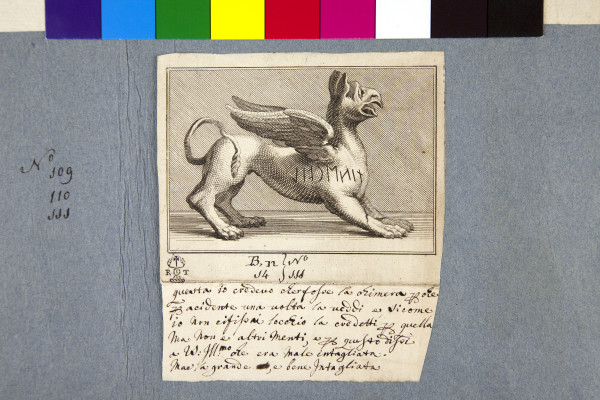 No
109
110
111
B. n } No
14 } 111
R T
questa io credevo che fosse la chimera p che
p accidente una volta la veddi e sicome
io non cifissai lochio la credetti p quella
ma non e altri menti, e p questo dissi
a V: Ill:mo che era male intagliata.
Mae la grande e bene Intagliata